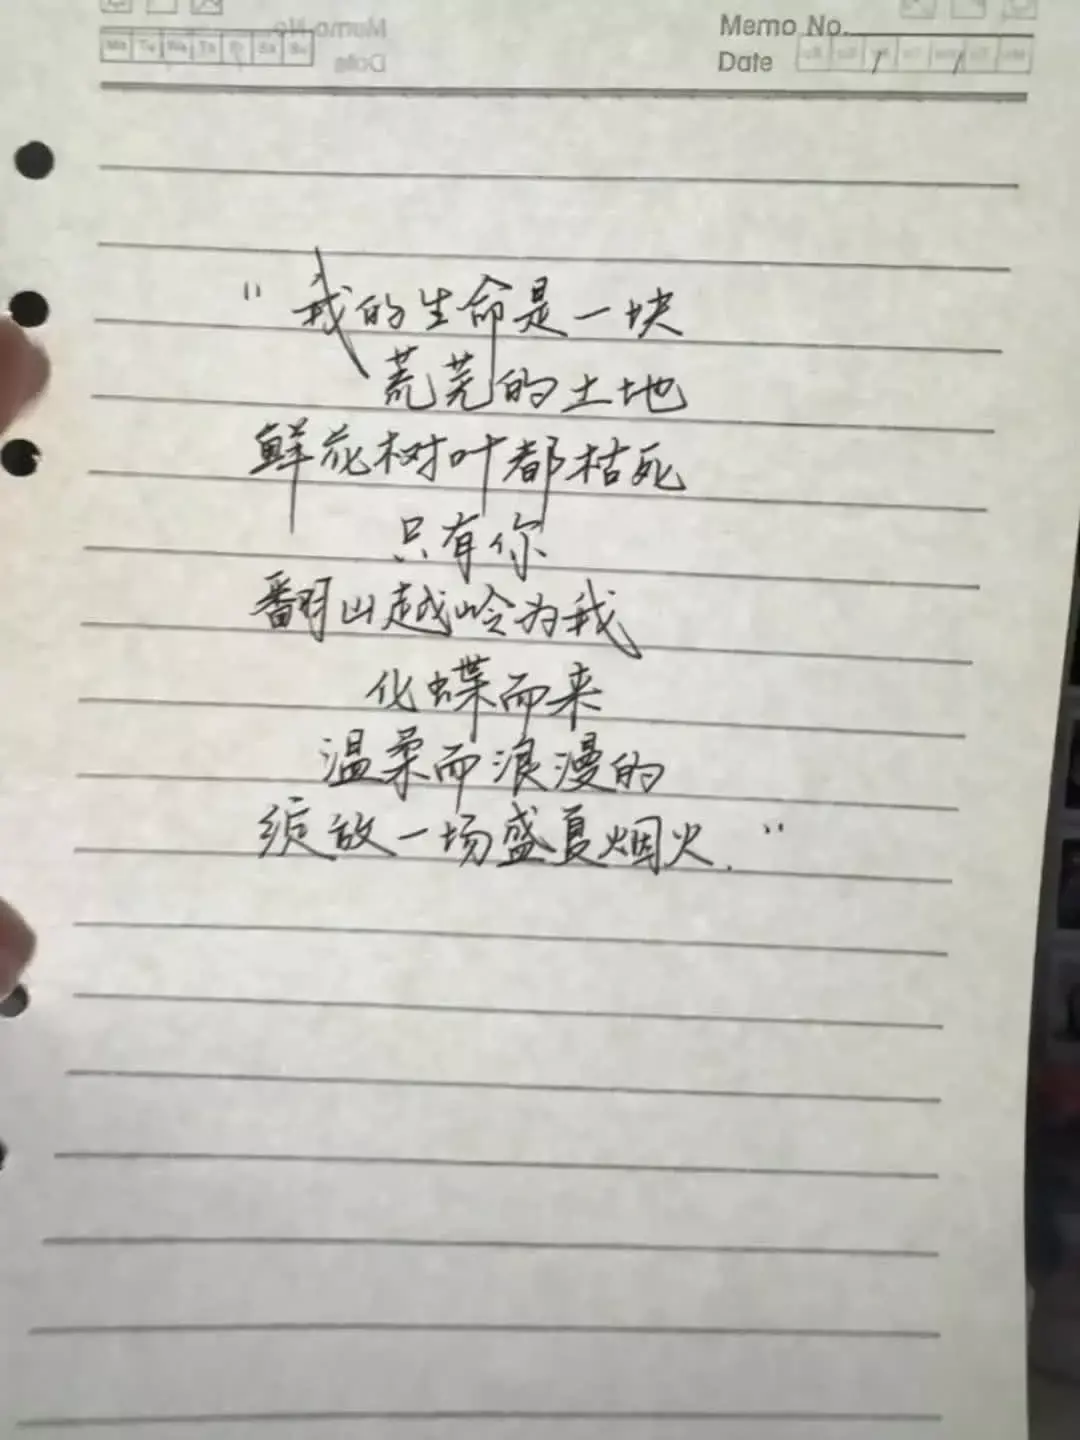 Memo No.
Date
Mo Tu We Th Fr Sa Su
Memo No.
Date
"我的生命是一块
荒芜的土地
鲜花树叶都枯死
只有你
翻山越岭为我
化蝶而来
温柔而浪漫的
绽放一场盛夏烟火."